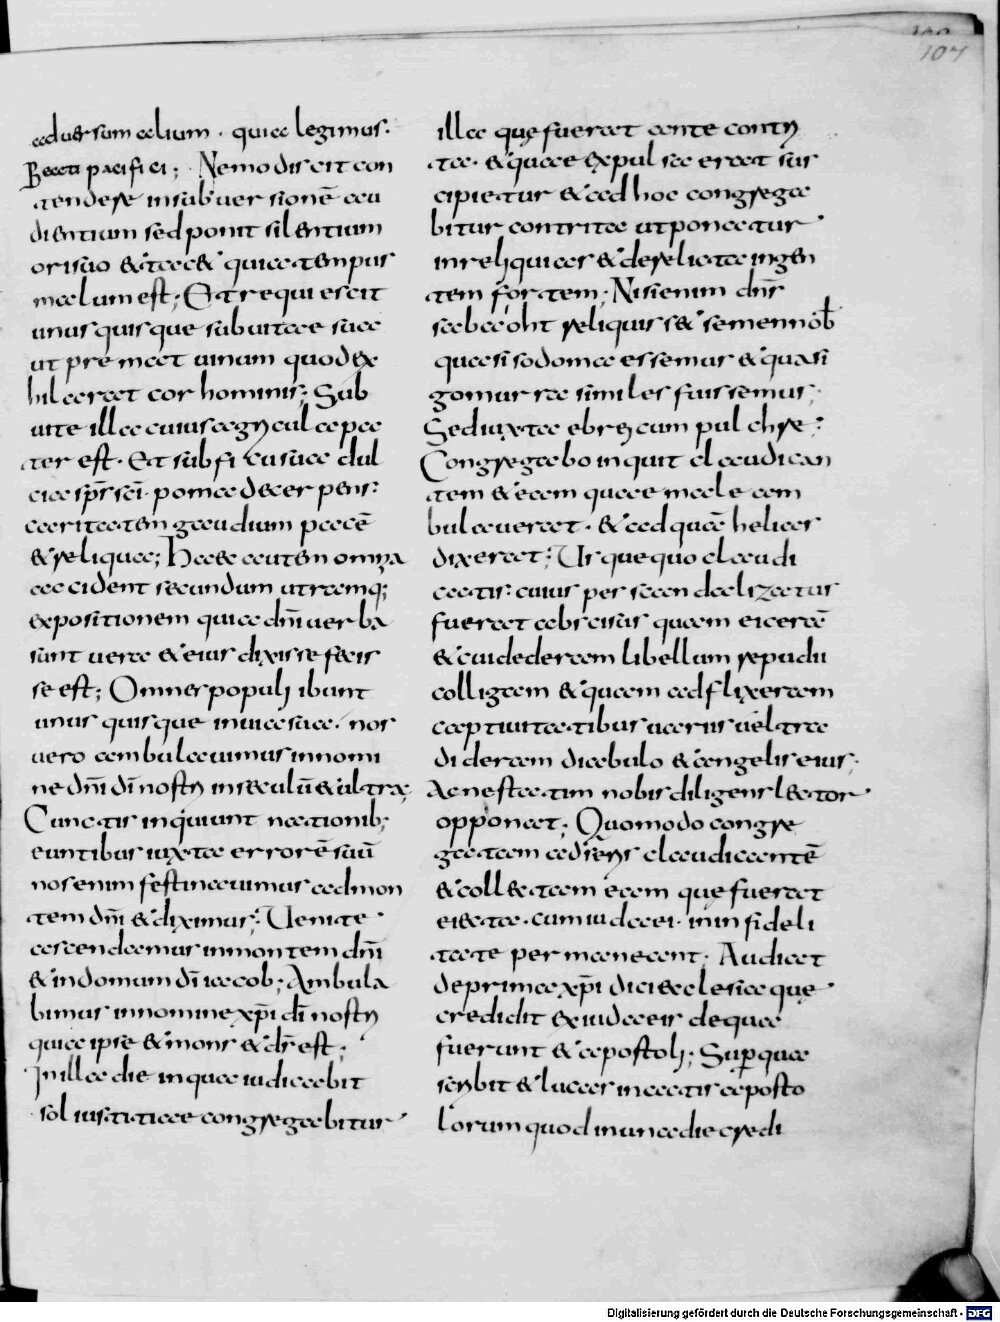 107
aduersum alium · quia legimus·
Beati pacifici; Nemo discit con
tendere insubuersionē au
dientium sed ponit silentium
orisuo &tac& quia tempus
malum est; Et requiescit
unusquisque subuitae sua
ut premat uinum quod ex
hilarat cor hominis; Sub
uite illa cuius agricula pa
ter est· Et sub ficu sua dul
cia sp̄s sc̄i· poma decerpens:
caritatem gaudium pacē
& reliqua; Haec autem omnia
accident secundum utramq;
expositionem quia dn̄i uerba
sunt uera & eius dixisse facis
se est; Omnes populi ibunt
unus quisque inuia sua· nos
uero ambulauimus innomi
ne dn̄i dī nostri insaeculū & ultra;
Cunctis inquiunt nationib;
euntibus iuxta errorē suū
nos enim festinauimus admon
tem dn̄i & diximus; Uenite
ascendamus inmontem dn̄i
& indomum dī iacob; Ambula
bimus innomine xp̄i dī nostri
quia ipse & mons & ds̄ est;
Inilla die inqua iudicabit
sol iustitiae congregabitur
illa quę fuerat ante contri
ta· & quae expulsa erat sus
cipietur & adhoc congrega
bitur contrita utponatur
inreliquias & derelicta ingen
tem fortem; Nisi enim dn̄s
sabaoht reliquisset semen nob̄
quasi sodoma essemus & quasi
gomurra similes fuissemus;
Sed iuxta ebreicum pulchre:
Congregabo inquit claudican
tem & eam quae male am
bulauerat· & ad quā helias
dixerat; Usquequo claudi
catis: cuius per saecn daalizatus
fuerat abrcisus quam eicerā
& cui dederam libellum repudii
colligam & quam adflixeram
captiuitatibus uariis uel tra
dideram diabulo & angelis eius;
Ac ne statim nobis diligens lector
opponat; Quomodo congre
gatam adseris claudicantē
& collectam eam quę fuerat
eiecta· cum iudaei· in infideli
tate permaneant; Audiat
deprima xp̄i dici ecclesia quę
credidit exiudaeis dequa
fuerunt & apostoli; Super qua
scribit & lucas inactis aposto
lorum quod in una die credi
Digitalisierung gefördert durch die Deutsche Forschungsgemeinschaft - DFG